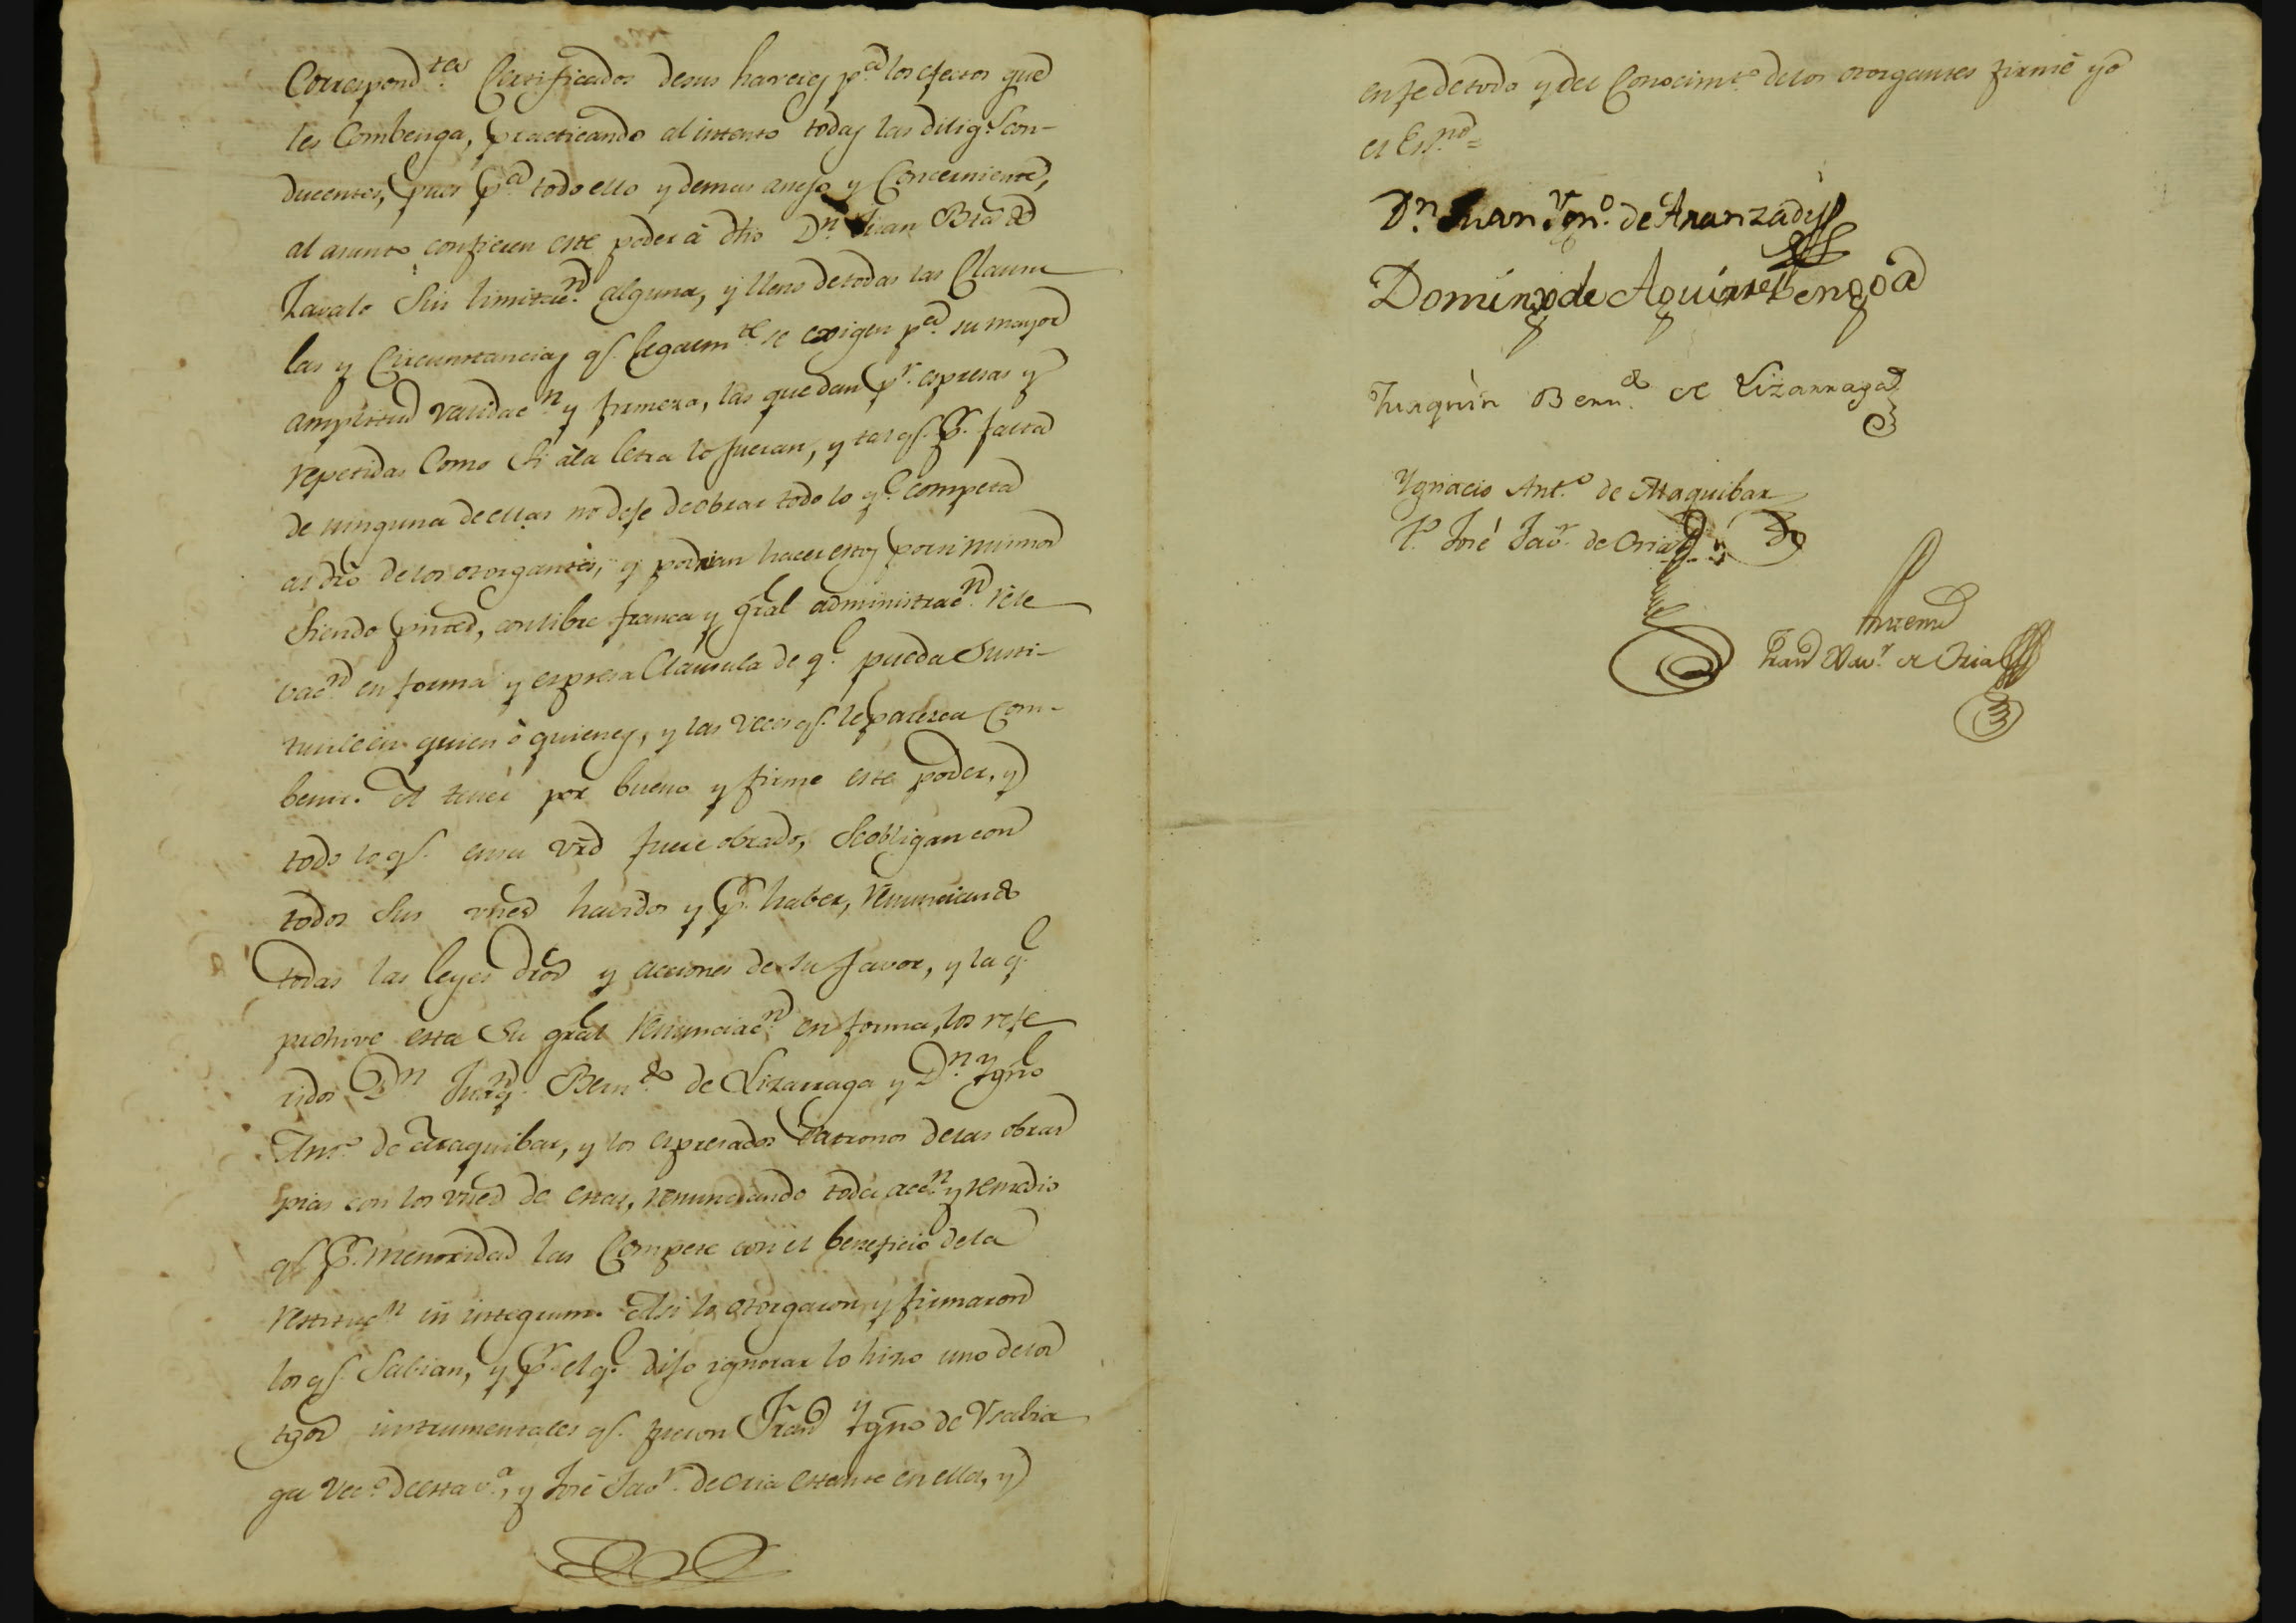 Correspond.tes Certificados desus haveres p.a los efectos que
les Combenga, practicando al intento todas las dilig.s con-
ducentes, pues p.a todo ello y demas anejo y Concerniente,
al asunto confieren este poder â dho D.n Juan Bta de
Zavalo Sin limitac.n alguna, y lleno detodas las Clausu
las y Circunstancias q.e legalm.te se exigen p.a su mayor
amplitud validac.n y firmeza, las quedan p.r espresas y
repetidas Como Si âla letra lo fueran, y tal q.e p.r falta
de ninguna deellas no deje deobrar todo lo q.e competa
al dro delos otorgantes, y podrian hacer estos porsi mismos
Siendo pntes, conlibre franca y gral administrac.n rele
vac.n en forma y espresa Clausula de q.e pueda Susti-
tuirle en quien ô quienes, y las veces q.e leparezca Com-
benir. A tener por bueno y firme este poder, y
todo lo q.e ensu vrd fuere obrado, Seobligan con
todos Sus vnes havidos y p.r haber, renunciando
todas las leyes dros y acciones de su favor, y la q.e
prohive esta Su gral renunciac.n en forma, los refe
ridos D.n Juaq.n Bern.do de Lizarraga y D.n Ygno
Ant.o de Araquibar, y los espresados Patronos delas obras
pias con los vnes de estas, renunciando toda acc.n y remedio
q.e p.r menoridad las Compete con el beneficio dela
restituc.n in integrum. Asi lo otorgaron y firmaron
los q.e Sabian, y p.r el q.e dijo ignorar lo hizo uno delos
tgos instrumentales q.e fueron Fran.co Ygno de Vsabia
ga Vec.o deesta v.a, y José Jav.r de Oria estante en ella, y
enfe detodo y del Conocim.to delos otorgantes firmé yo
el Es.no =
D.n Juan Ygn.o de Aranzadi
Domingo de Aguirrebengoa
Juaquin Bern.do de Lizarraga
Ygnacio Ant.o de Araquibar
T.o José Jav.r de Oria
Antemi
Fran.co Xav.r de Oria